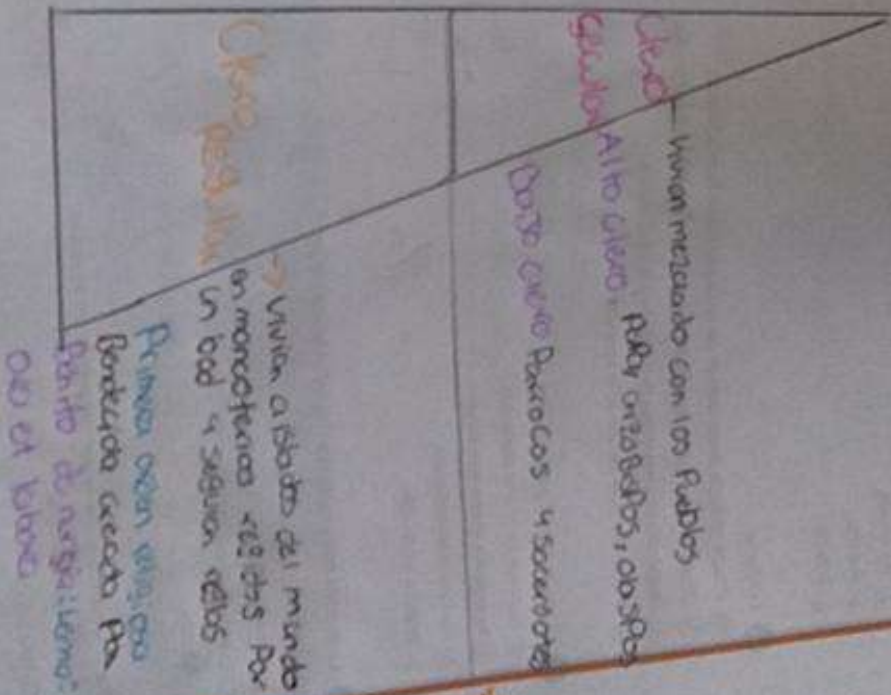 Clero
Secular
- Vivian mezclado con los Pueblos
Alto clero, PaPa, arzobisPos, obisPos
Bajo clero Parrocos y sacerdotes
Clero
Regular
→ Vivian aislados del mundo
en monasterios regidos Por
un bad y seguian reglas
Primera orden religiosa
Benedicida creada Por
Benito de nursia: Lema:
Ora et labora